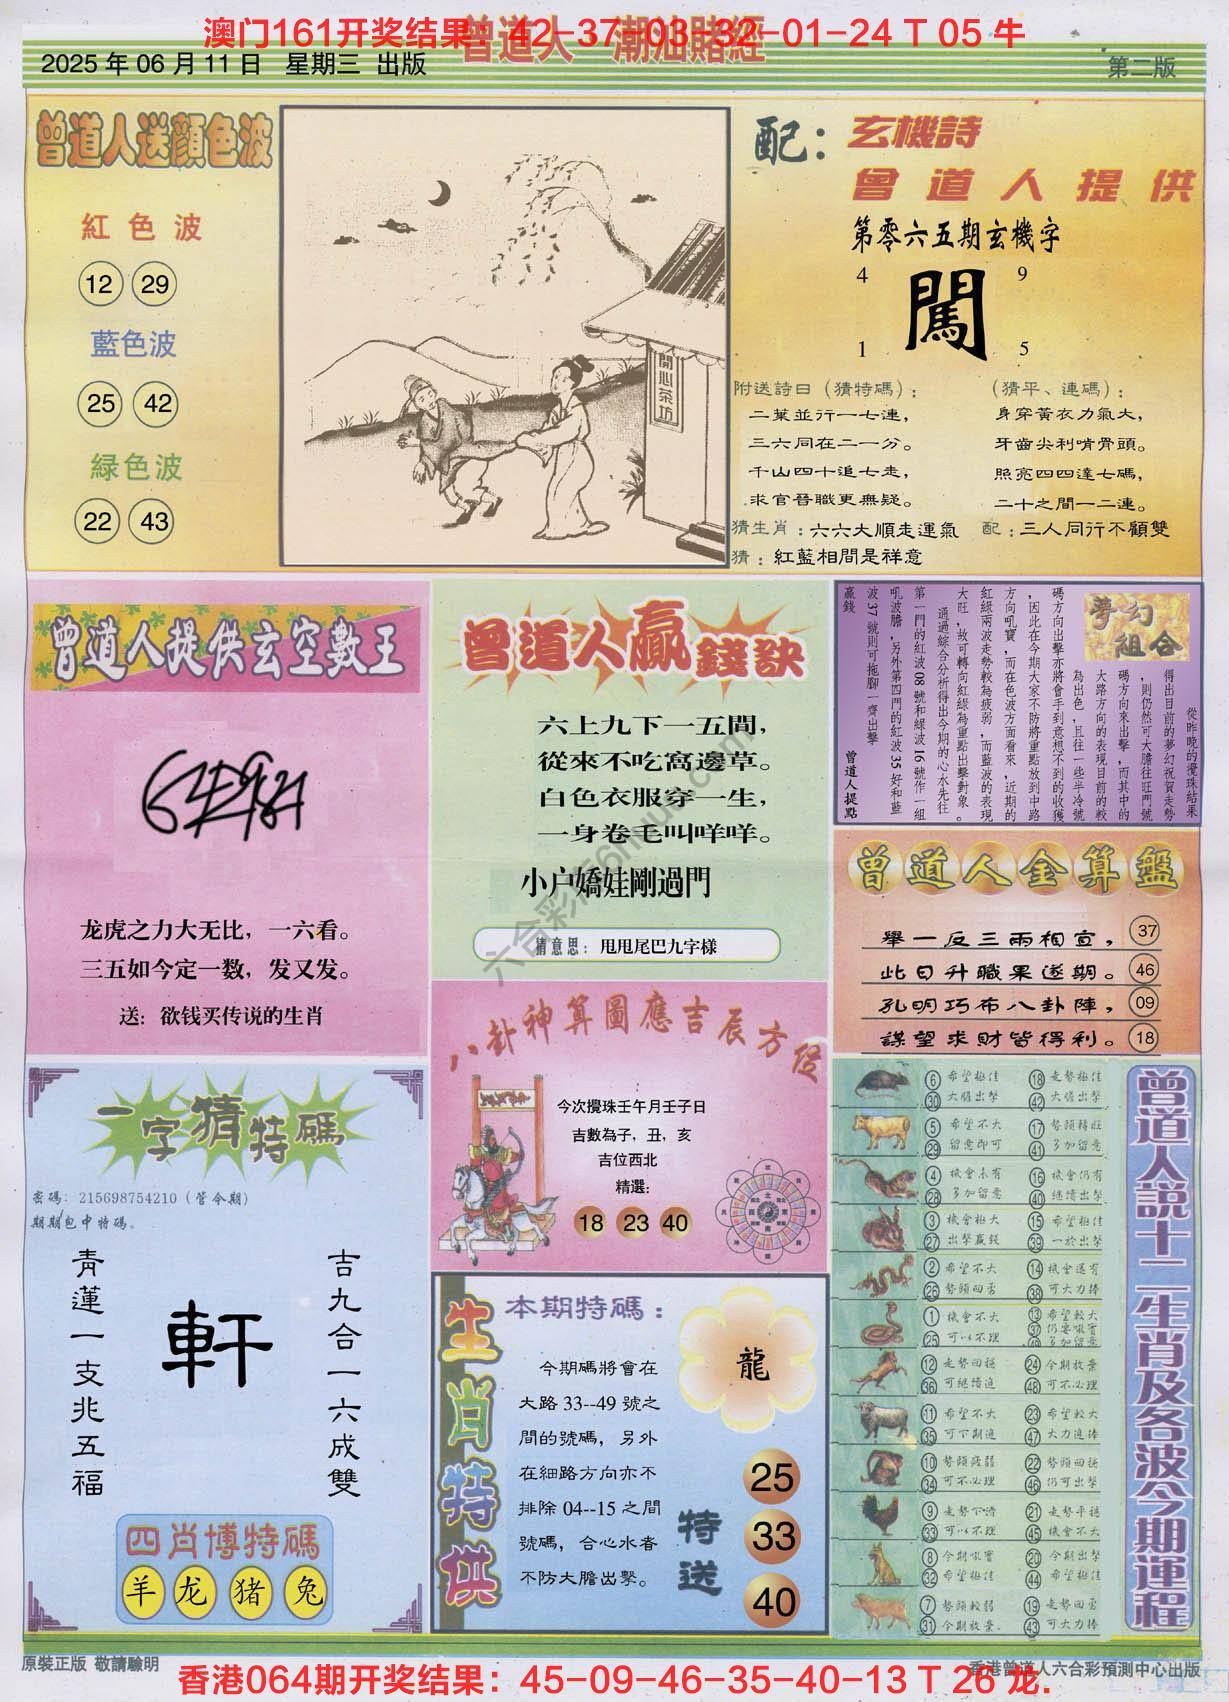 澳门161开奖结果：42-37-03-32-01-24 T 05 牛
曾道人 潮汕賭經
2025 年 06 月 11 日 星期三 出版
第二版
曾道人送顏色波
紅色波
12 29
藍色波
25 42
緑色波
22 43
開心茶坊
配：玄機詩
曾道人提供
第零六五期玄機字
4 9
闖
1 5
附送詩日（猜特碼）：
二葉並行一七連，
三六同在二一分。
千山四十追七走，
求官晉職更無疑。
（猜平、連碼）：
身穿黃衣力氣大，
牙齒尖利啃骨頭。
照亮四四達七碼，
二十之間一二連。
猜生肖：六六大順走運氣 配：三人同行不顧雙
猜：紅藍相間是祥意
曾道人提供玄空數王
龙虎之力大无比，一六看。
三五如今定一数，发又发。
送：欲钱买传说的生肖
曾道人贏錢訣
六上九下一五間，
從來不吃窩邊草。
白色衣服穿一生，
一身卷毛叫咩咩。
小户嬌娃剛過門
猜意思：甩甩尾巴九字樣
夢幻組合
從昨晚的攪珠結果
得出目前的夢幻祝賀走勢
，則仍然可大膽往旺門號
碼方向來出擊，而其中的
大路方向的表現目前的較
為出色，且往一些半冷號
碼方向出擊亦將會手到意想不到的收獲
，因此在今期大家不防將重點放到中路
方向吼寶，而在色波方面看來，近期的
紅綠兩波走勢較為疲弱，而藍波的表現
大旺，故可轉向紅綠為重點出擊對象。
通過綜合分析得出今期的心水先往
第一門的紅波 08 號和緑波 16 號作一組
吼波膽，另外第四門的紅波 35 好和藍
波 37 號則可拖腳一齊出擊
贏錢
曾道人提點
曾道人金算盤
舉一反三兩相宜， 37
此日升職果逐期。 46
孔明巧布八卦陣， 09
謀望求財皆得利。 18
八卦神算圖應吉辰方位
今次攪珠壬午月壬子日
吉數為子，丑，亥
吉位西北
精選：
18 23 40
一字猜特碼
密碼：215698754210（管令期）
期期包中特碼。
青蓮一支兆五福
軒
吉九合一六成雙
四肖博特碼
羊 龙 猪 兔
生肖特供
本期特碼：
龍
今期碼將會在
大路 33--49 號之
間的號碼，另外
在細路方向亦不
排除 04--15 之間
號碼，合心水者
不防大膽出擊。
特送
25
33
40
曾道人説十二生肖及各波今期運程
6 希望極佳 18 走勢極佳
30 大膽出擊 42 大膽出擊
5 希望不大 17 勢頭轉旺
29 留意即可 41 多加留意
4 機會未有 16 機會仍有
28 多加留意 40 继續出擊
3 機會極大 15 希望極佳
27 出擊贏錢 39 一於出擊
2 希望不大 14 機會還有
26 勢頭回雲 38 可大力捧
1 機會不大 13 希望較大
25 可以不理
12 走勢回穩 24 今期放棄
36 可継續追 48 可不必理
11 希望不大 23 希望較大
35 可下期追 47 大力追捧
10 勢頭疲弱 22 勢頭回穩
34 可不必理 46 仍可出擊
9 走勢下滑 21 走勢平穩
33 可以不理 45 機會不大
8 今期吼實 20 今期出擊
32 希望極佳 44 希望極佳
7 勢頭較弱 19 走勢回雲
31 今期放棄 43 可大力捧
原裝正版 敬請驗明
香港曾道人六合彩預測中心出版
香港064期开奖结果：45-09-46-35-40-13 T 26 龙.